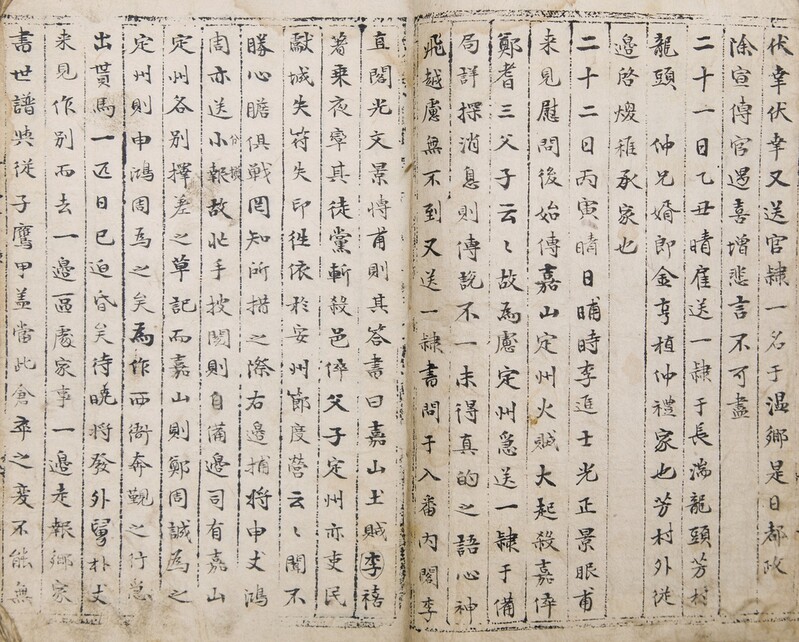 伏幸伏幸又送官隸一名于温鄉是日都政
除宣傳官遇喜增悲言不可盡
二十一日乙丑晴雇送一隸于長湍龍頭芳村
龍頭 仲兄婚郎金亨植仲禮家也芳村外從
邊啓煥稚承家也
二十二日丙寅晴日晡時李進士光正景眼甫
来見慰問後始傳嘉山定州火賊大起殺嘉倅
鄭耆三父子云云故為慮定州急送一隸于備
局詳探消息則傳說不一未得真的之語心神
飛越慮無不到又送一隸書問于入番內閣李
直閣光文景博甫則其答書曰嘉山土賊李禧
著乘夜率其徒黨斬殺邑倅父子定州亦吏民
獻城失符失印徃依於安州節度營云云聞不
勝心膽俱戰罔知所措之際右邊捕將申丈鴻
周亦送小報故忙手披閱則自備邊司有嘉山
定州各別擇差之草記而嘉山則鄭周誠為之
定州則申鴻周為之矣為作西衙奔覲之行急
出貰馬一匹日已迫昏矣待曉將發外舅朴丈
来見作別而去一邊區處家事一邊走報鄉家
書世譜典從子鷹甲盖當此倉卒之変不能無